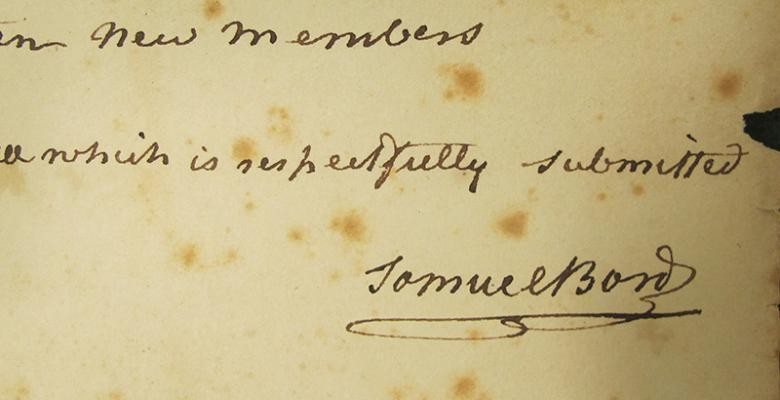 New Members
which is respectfully submitted
Samuel Bord